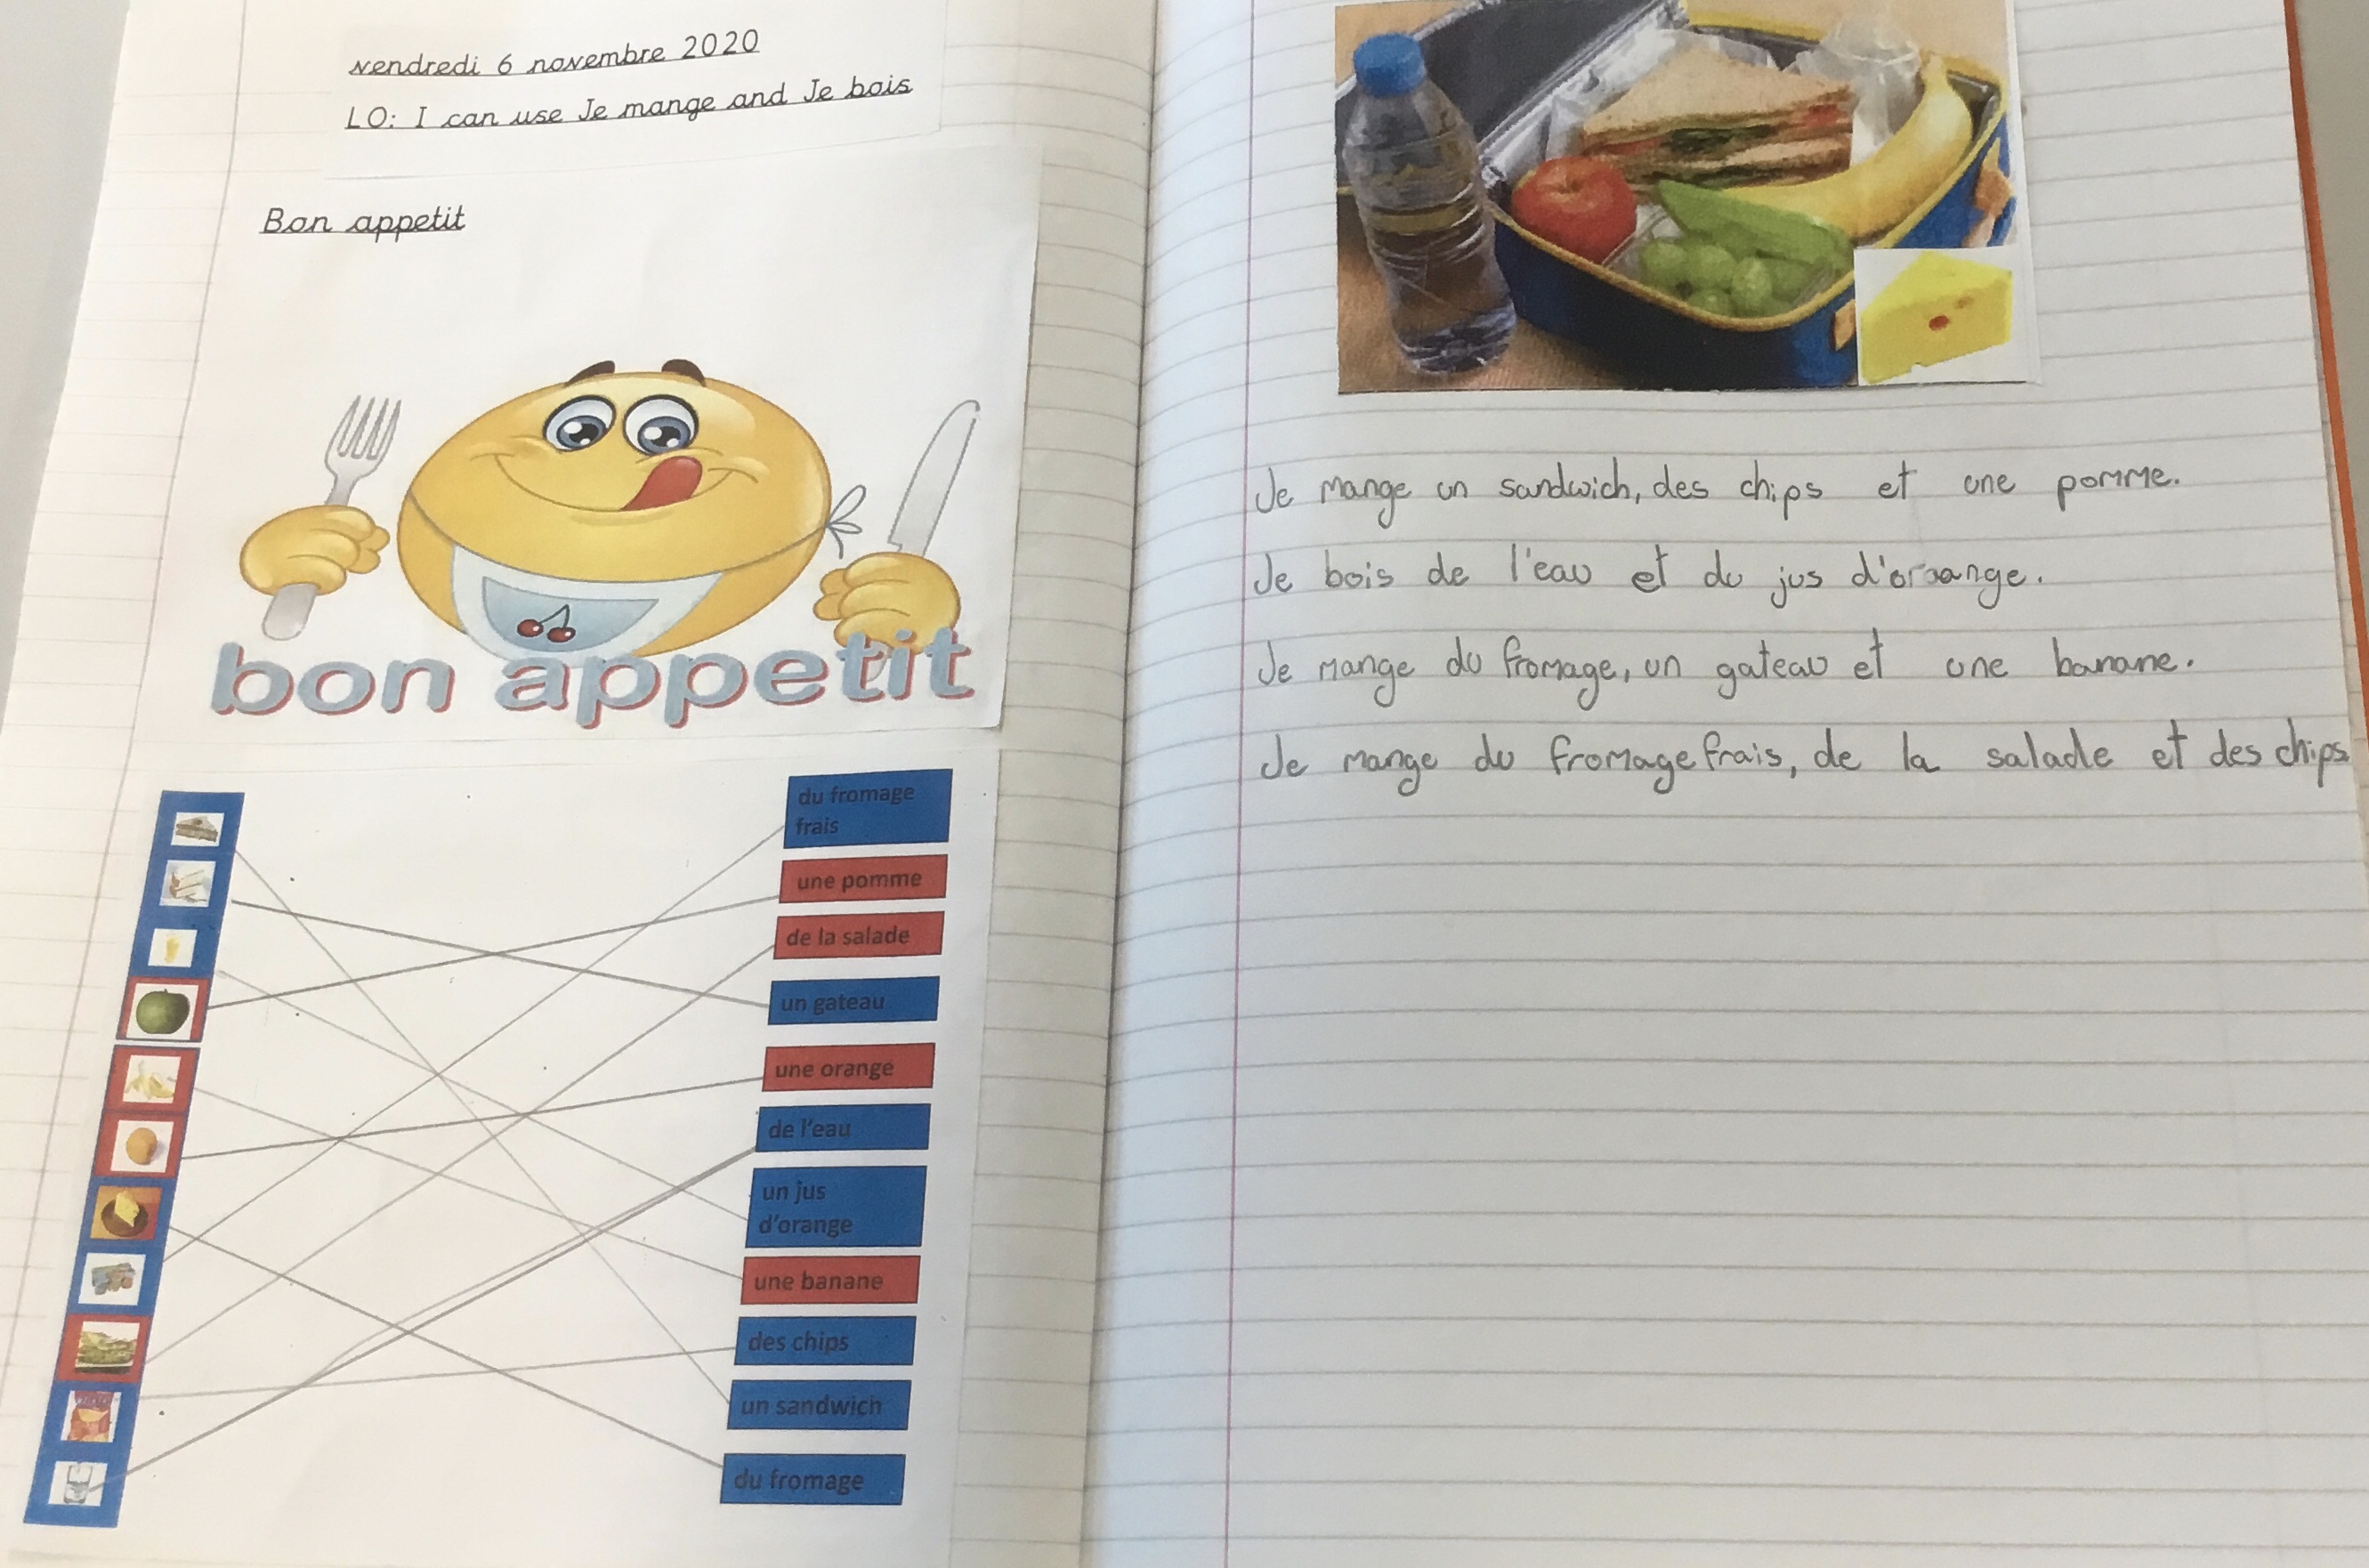 vendredi 6 novembre 2020
LO: I can use Je mange and Je bois
Bon appetit
bon appetit
du fromage
frais
une pomme
de la salade
un gateau
une orange
de l'eau
un jus
d'orange
une banane
des chips
un sandwich
du fromage
Je mange un sandwich, des chips et une pomme.
Je bois de l'eau et du jus d'oraange.
Je mange du fromage, un gateau et une banane.
Je mange du fromage frais, de la salade et des chips